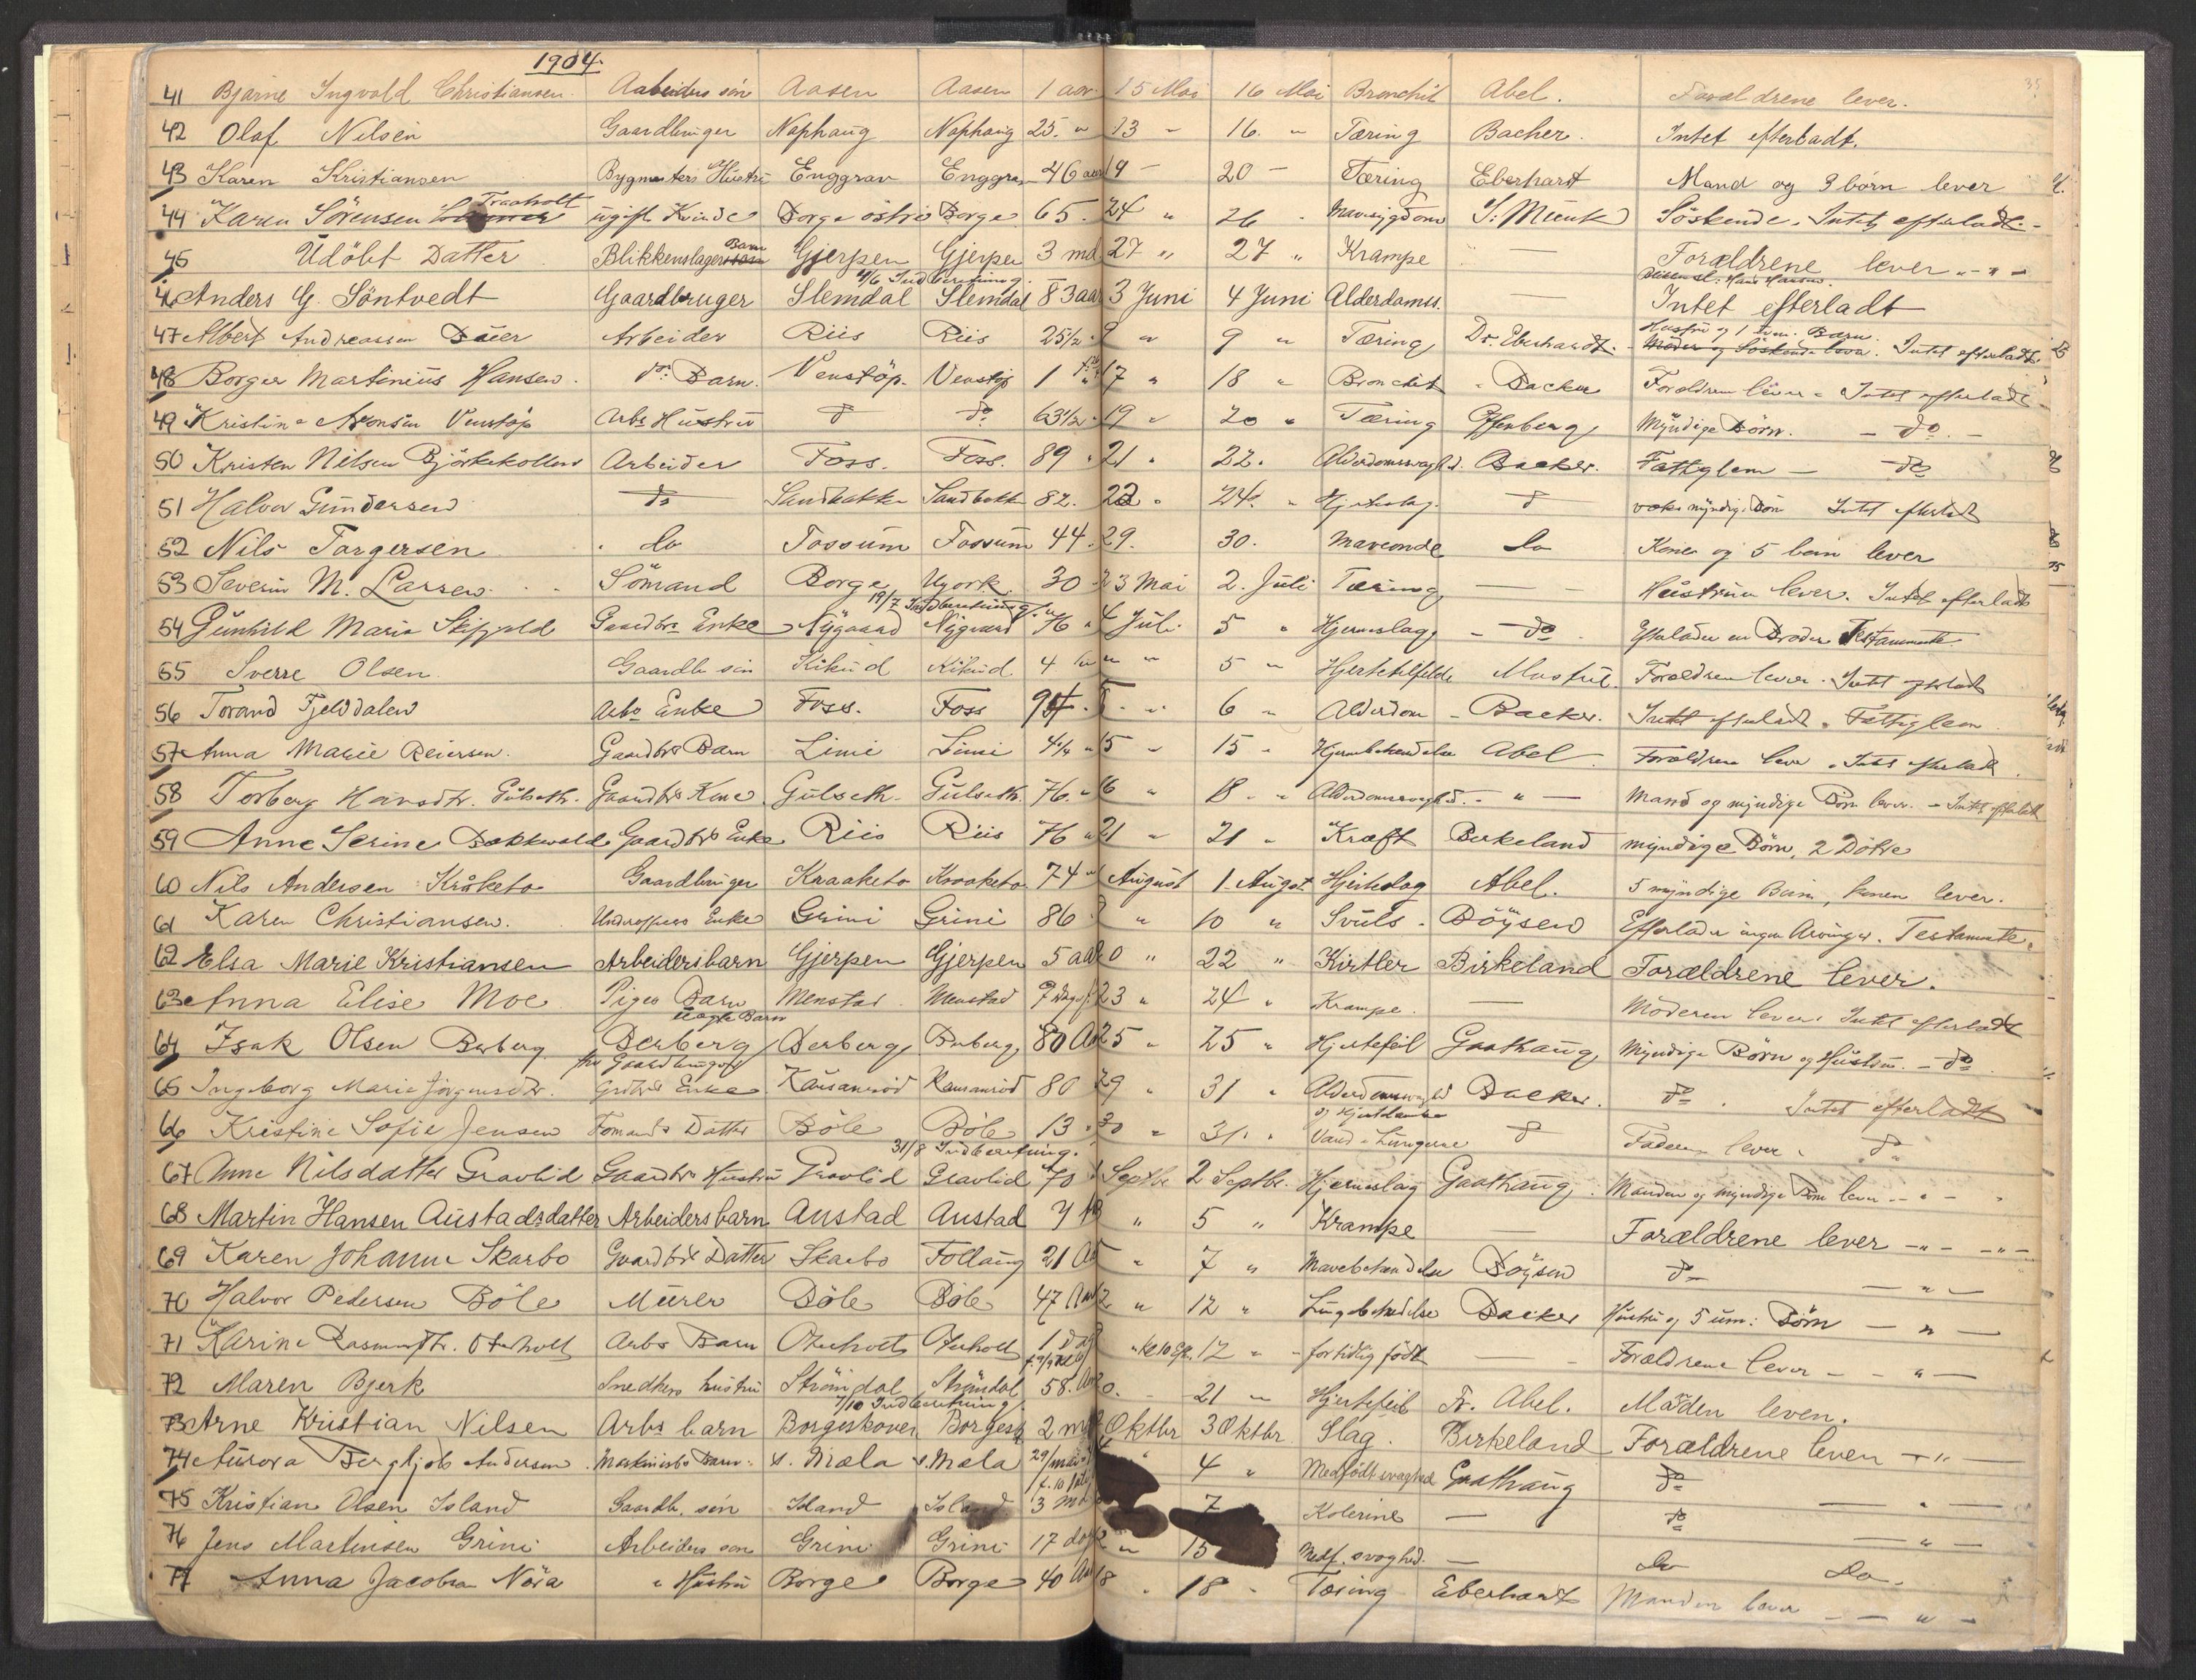 1904.
41 Bjarne Ingvald Christiansen Arbeiders sön Aasen Aasen 1 aar 15 Mai 16 Mai Bronchit Abel. Forældrene lever.
42 Olaf Nilsen Gaardbruger Naphaug Naphaug 25 " 13 " 16 " Tæring Backer. Intet efterladt.
43 Karen Kristiansen Bygmesters Hustru Enggrav Enggrav 46 aar 19 - 20 - Tæring Eberhart Mand og 9 börn lever
Traaholt
44 Karen Sörensen ugift Kvinde Borge östre Borge 65 24 " 26 " Mavesygdom J. Munk Söskende. Intet efterladt.
Barn
45 Udöbt Datter Blikkenslager Gjerpen Gjerpen 3 md 27 " 27 " Krampe — Forældrene lever - " -
4/6 Indberetning. Hans Hansen.
46 Anders G. Söntvedt Gaardbruger Slemdal Slemdal 83 aar 3 Juni 4 Juni Alderdomss. — Intet efterladt
Hustru og 1 um. Barn.
47 Albert Andreassen Arbeider Riis Riis 25 1/2 " 9 " Tæring Dr. Eberhardt. Moder og Söskende lever. Intet efterladt.
48 Borger Martinius Hansen. do Barn. Venstöp. Venstöp 1 17 " 18 " Bronchit Backer Forældrene lever - Intet efterladt
49 Kristine Aronsen Venstöp Arbs Hustru do do 63 1/2 19 " 20 " Tæring Offenberg Myndige Börn. - do -
50 Kristen Nilsen Björkekollen Arbeider Foss. Foss. 89 " 21 " 22. Alderdomssvaghd. Backer. Fattiglem - do
51 Halvor Gundersen do Sandbakke Sandbakk 82. 22 " 24. " Hjerteslag. do voks. myndig. Börn Intet efterladt
52 Nils Torgersen do Fossum Fossum 44. 29. 30. Maveonde do Kone og 5 börn lever
53 Severin M. Larsen Sömand Borge Nyork. 30 23 Mai 2. Juli Tæring — Hustrun lever. Intet efterladt
19/7 Indberetning.
54 Gunhild Maria Gaardbrs Enke Nygaard Nygaard 76 " 4 Juli 5 " Hjerneslag - do Efterlader en Broder Testamente.
55 Sverre Olsen Gaardb sön Kikud Kikud 4 " " 5 " Hjertefeil Forældrene lever. Intet efterladt
56 Torand Fjelddalen Arbs Enke Foss. Foss 5 - " 6 " Alderdom - Backer. Intet efterladt. Fattiglem
57 Anna Marie Reiersen. Gaardbrs Barn Limi Limi 4 1/2 " 15 " 15 " Hjernebetændelse Abel Forældrene lever. Intet efterladt.
58 Torberg Hansdtr. Gulseth. Gaardbrs Kone Gulseth. Gulseth. 76. " 16 " 18. " Alderdomssvaghd. - " - Mand og myndige Börn lever. - Intet efterladt
59 Anne Serine Gaardbrs Enke Riis Riis 76 " 21 " 21 " Kræft Birkeland myndige Börn, 2 Dötre
60 Nils Andersen Kråketo Gaardbruger Kraaketo Kraaketo 74 " August 1. August. Hjerteslag Abel. 5 myndige Barn, konen lever.
61 Karen Christiansen. Enke Grini Grini 86 " 10 " Svuls. Böysen Efterlader ingen Arvinger. Testamente.
62 Elsa Marie Kristiansen Arbeidersbarn Gjerpen Gjerpen 5 aar 0 " 22 " Kirtler Birkeland Forældrene lever.
63 Anna Elise Moe Piges Barn Menstad. Menstad 9 dage 23 " 24 " Krampe. — Moderen lever. Intet efterladt
uægte Barn
64 Isak Olsen Berberg Berberg Berberg Berberg, 80 Aar 25 " 25 " Hjertefeil Gaathaug Myndige Börn og Hustru. - do
fhv Gaardbruger
65 Ingeborg Marie Jörgensdtr. Grdbrs Enke Kausanröd Kausanröd 80 29 " 31 " Alderdomssvaghd Backer. do. Intet efterladt
66 Kristine Sofie Jensen Fomands Datter Böle Böle 13. 30 " 31. " Vand i Lungerne do Faderen lever. do
31/8 Indberetning.
67 Anne Nilsdatter Gravlid Gaardbrs Hustru Gravlid Gravlid 70 Septbr 2 Septbr. Hjerneslag Gaathaug. Manden og myndige Börn lever - " -
68 Martin Hansen Austadsdatter Arbeidersbarn Austad Austad 7 " 5 " Krampe — Forældrene lever - " - - " -
69 Karen Johanne Skarbo Gaardbrs Datter Skarbo Follaug 21 Aar " 7 " Mavebetændelse Böysen do - " -
70 Halvor Pedersen Böle Murer Böle Böle 47 Aar 12 " 12 " Lungebetændelse Backer Hustru og 5 um: Börn - " -
71 Karine Rasmusdtr. Oterholt Arbs Barn Oterholt Oterholt 1 dag " kl 10 Ef. 12 " - for tidlig född — Forældrene lever - - " -
72 Maren Bjerk Snedkers hustru Strömdal Strömdal 58. Aar 20. - 21 " Hjertefeil Fr. Abel. Manden leven.
1/10 Indberetning.
73 Arne Kristian Nilsen Arbs barn Borgeskoven Borgesk 2 md Oktbr 3 Oktbr. Slag. Birkeland Forældrene leven - " -
74 Aurora Bergljot Andersen. Maskinists Barn. n. Mæla n. Mæla 4 " Medfödt svaghed Gaathaug do
75 Kristian Olsen Island Gaardb. sön Island Island 3 md 7 Kolerine — do - " -
76 Jens Martinsen Grini Arbeiders sön Grini Grini 17 dage 12 " 15 Medf. svaghed. — do - " -
77 Anna Jacobsen Nöra " Hustru Borge Borge 40 Aar 18 . 18 " Tæring Eberhardt Manden lever - - " -